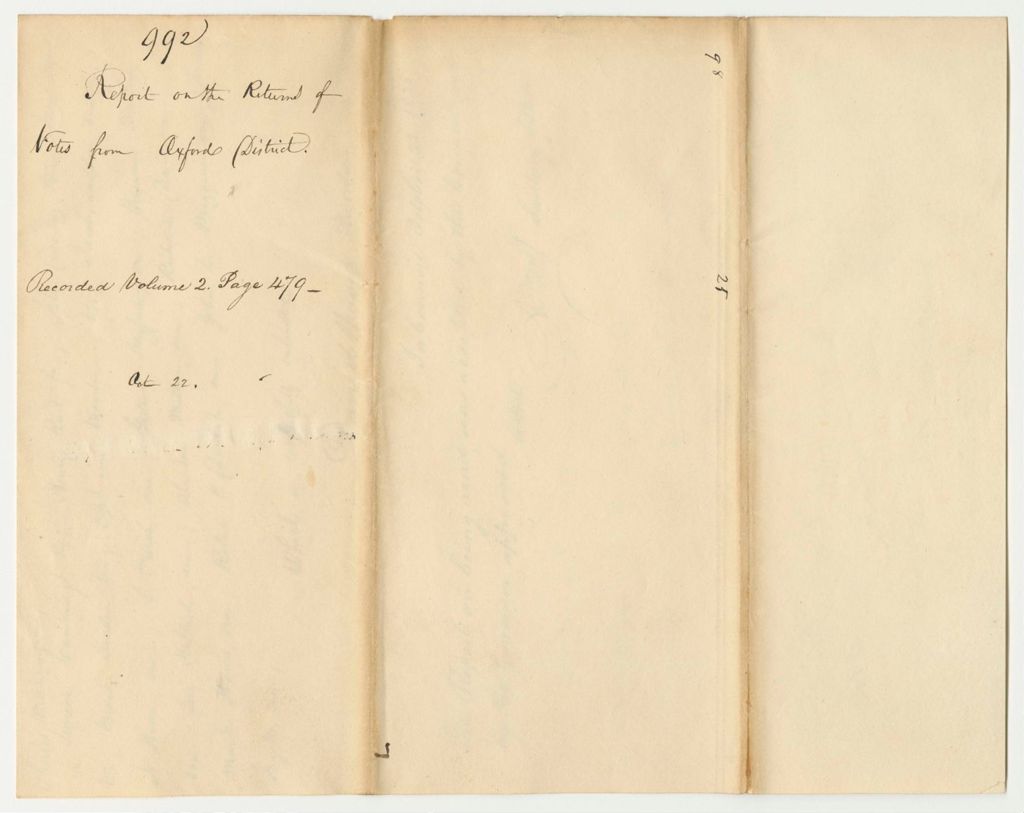 992
Report on the Returns of
Votes from Oxford District.
Recorded Volume 2. Page 479_
Oct 22.
98
25